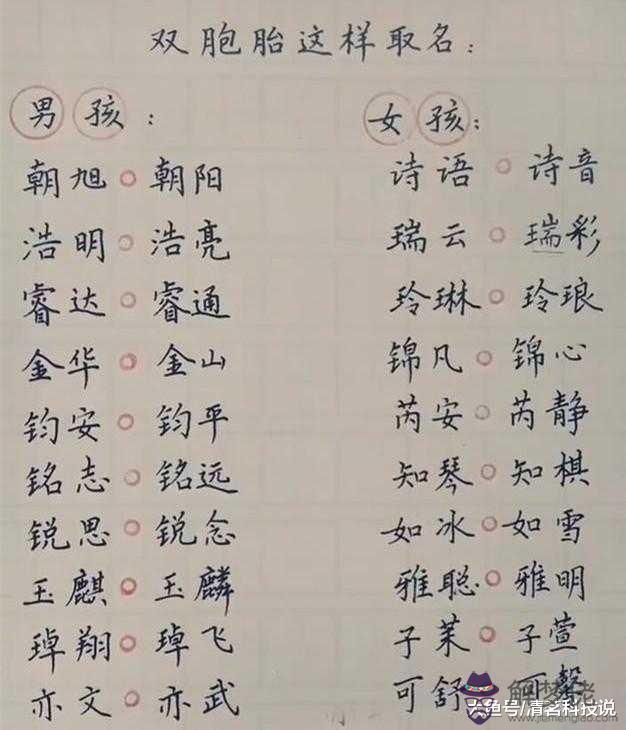 双胞胎这样取名：
男孩：
朝旭 朝阳
浩明 浩亮
睿达 睿通
金华 金山
钧安 钧平
铭志 铭远
锐思 锐念
玉麒 玉麟
琸翔 琸飞
亦文 亦武
女孩：
诗语 诗音
瑞云 瑞彩
玲琳 玲琅
锦凡 锦心
芮安 芮静
知琴 知棋
如冰 如雪
雅聪 雅明
子茉 子萱
可舒 可馨
解梦佬
www.jiemenglao.com
大鱼号/清茗科技说